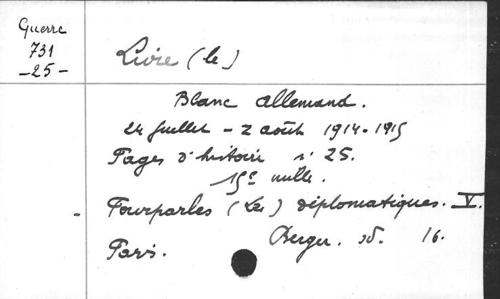 Guerre
731
-25-
Livre (le)
Blanc allemand.
24 Juillet - 2 août 1914-1915
Pages d'histoire n° 25.
15e mille.
Pourparlers (Les) diplomatiques. V.
Paris. Berger. sd. 16.